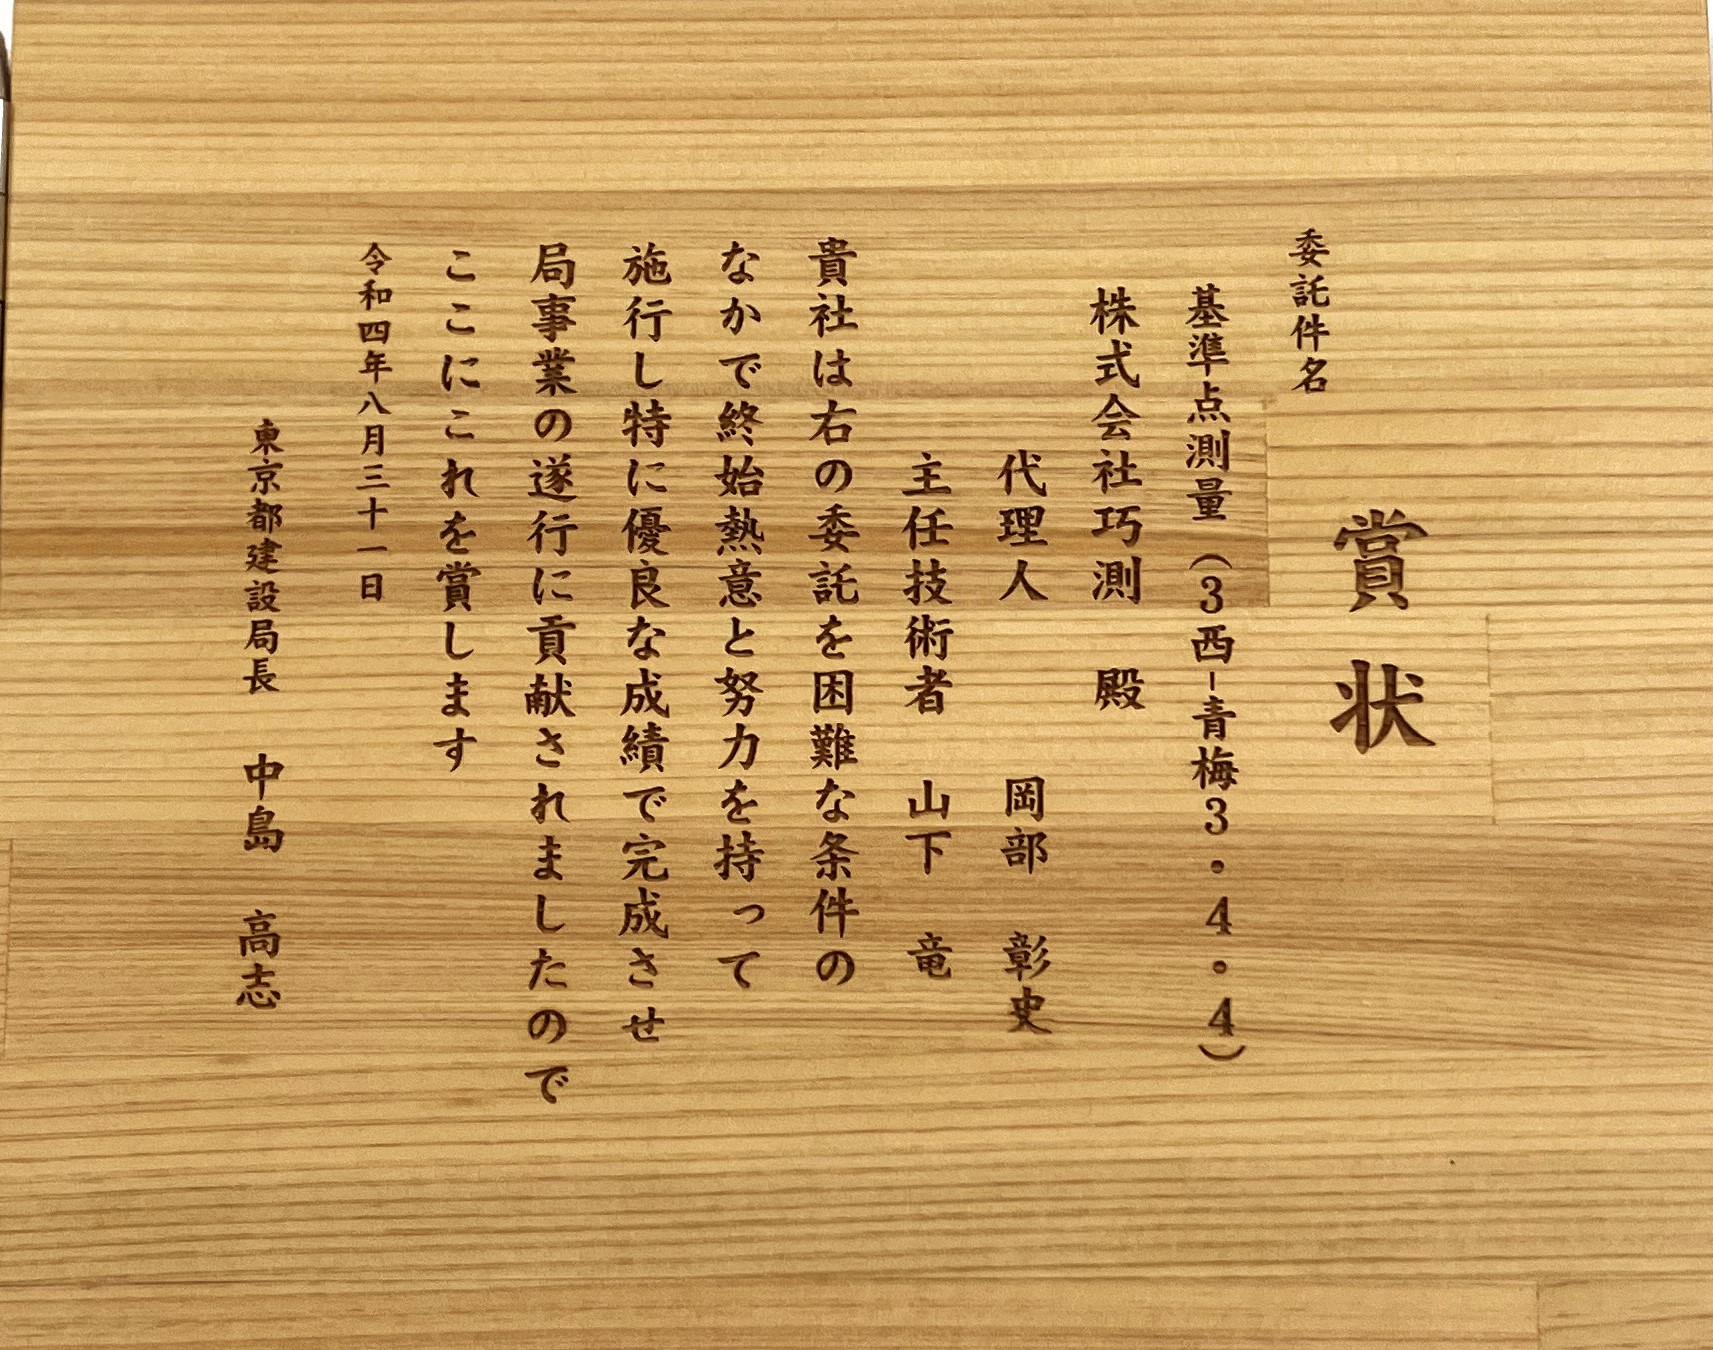 賞状
委託件名
基準点測量（3西-青梅3・4・4）
株式会社巧測　殿
代理人　岡部　彰史
主任技術者　山下　竜
貴社は右の委託を困難な条件の
なかで終始熱意と努力を持って
施行し特に優良な成績で完成させ
局事業の遂行に貢献されましたので
ここにこれを賞します
令和四年八月三十一日
東京都建設局長　中島　高志